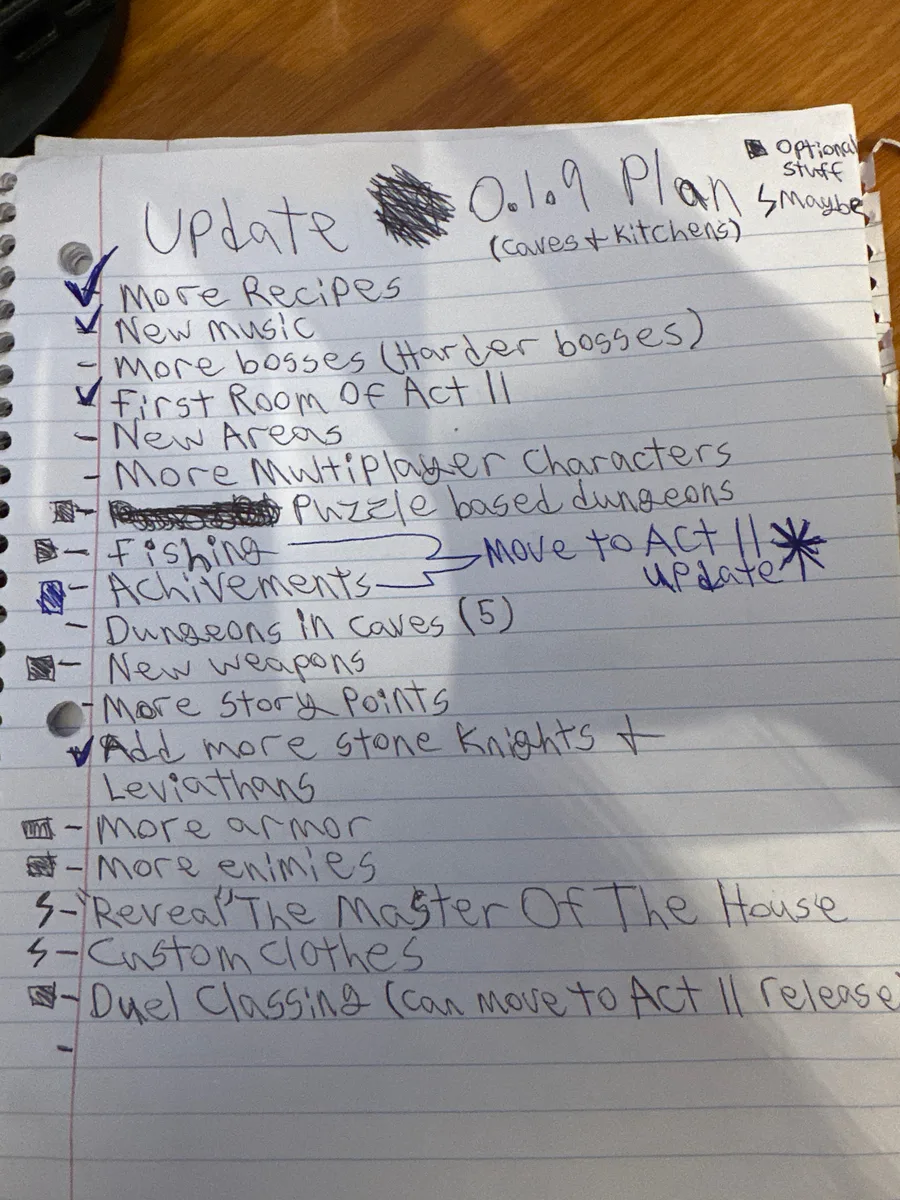 Optional
stuff
Maybe
Update 0.1.9 Plan
(Caves + Kitchens)
More Recipes
New music
- More bosses (Harder bosses)
First Room Of Act II
- New Areas
- More Multiplayer Characters
- Puzzle based dungeons
- Fishing
Move to Act II
update
- Achivements
- Dungeons in caves (5)
- New weapons
- More story Points
Add more stone Knights +
Leviathans
- More armor
- More enimies
- "Reveal" The Master Of The House
- Custom Clothes
- Duel Classing (Can move to Act II release)
-